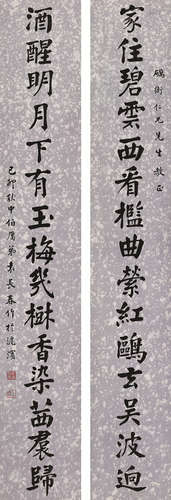 衡仁兄先生教正
家住碧雲西看檻曲縈紅鷗去吳波迥
酒醒明月下有玉梅幾樹香染茜裠歸
己卯秋中伯賡弟袁長春作於滬濱